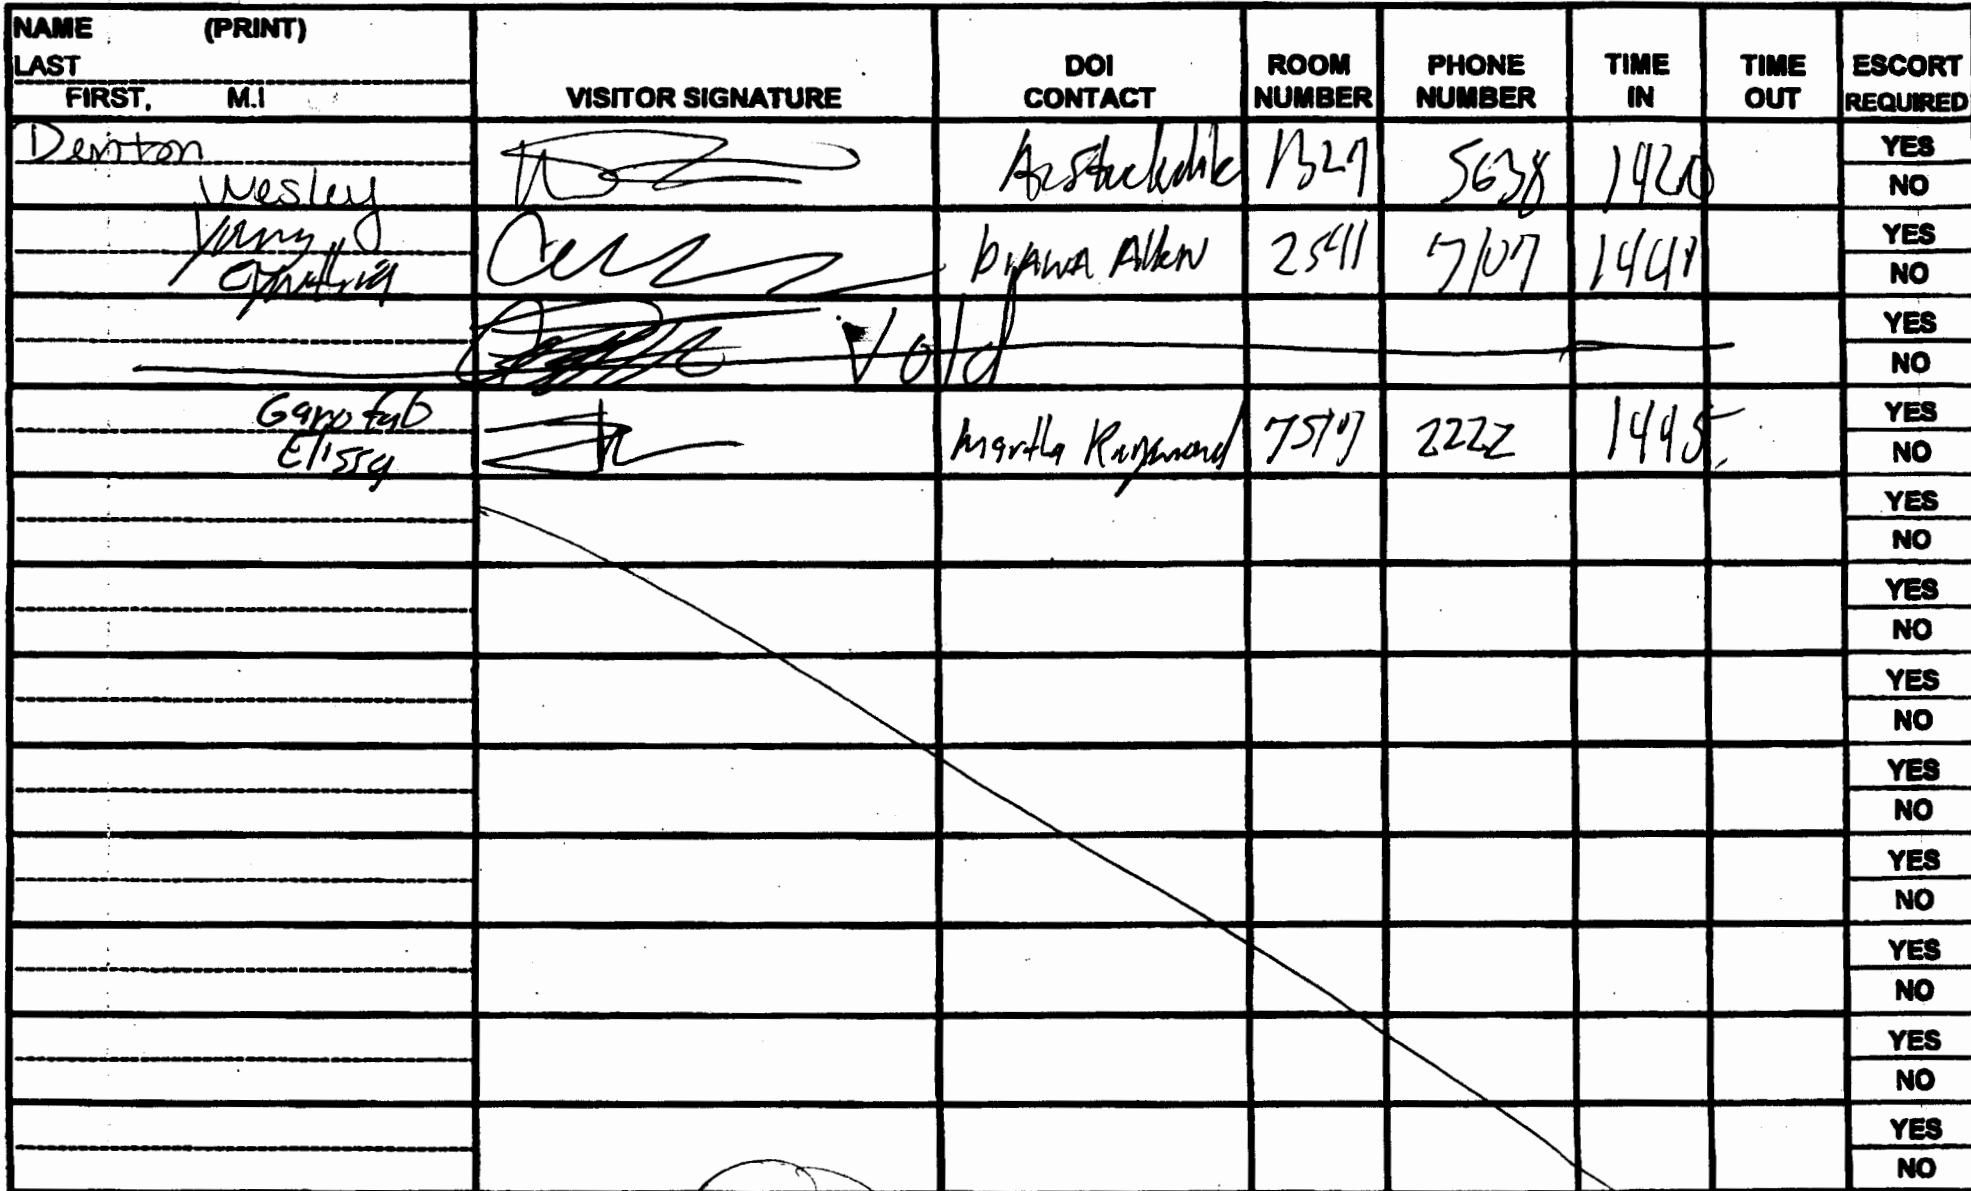 NAME (PRINT)
LAST
FIRST, M.I
VISITOR SIGNATURE
DOI CONTACT
ROOM NUMBER
PHONE NUMBER
TIME IN
TIME OUT
ESCORT REQUIRED
Denton
Wesley
1327 5638 1420
YES
NO
Allen 2541 7107
YES
NO
Void
YES
NO
Elissa
Martha Raymond 2222 1445
YES
NO
YES
NO
YES
NO
YES
NO
YES
NO
YES
NO
YES
NO
YES
NO
YES
NO